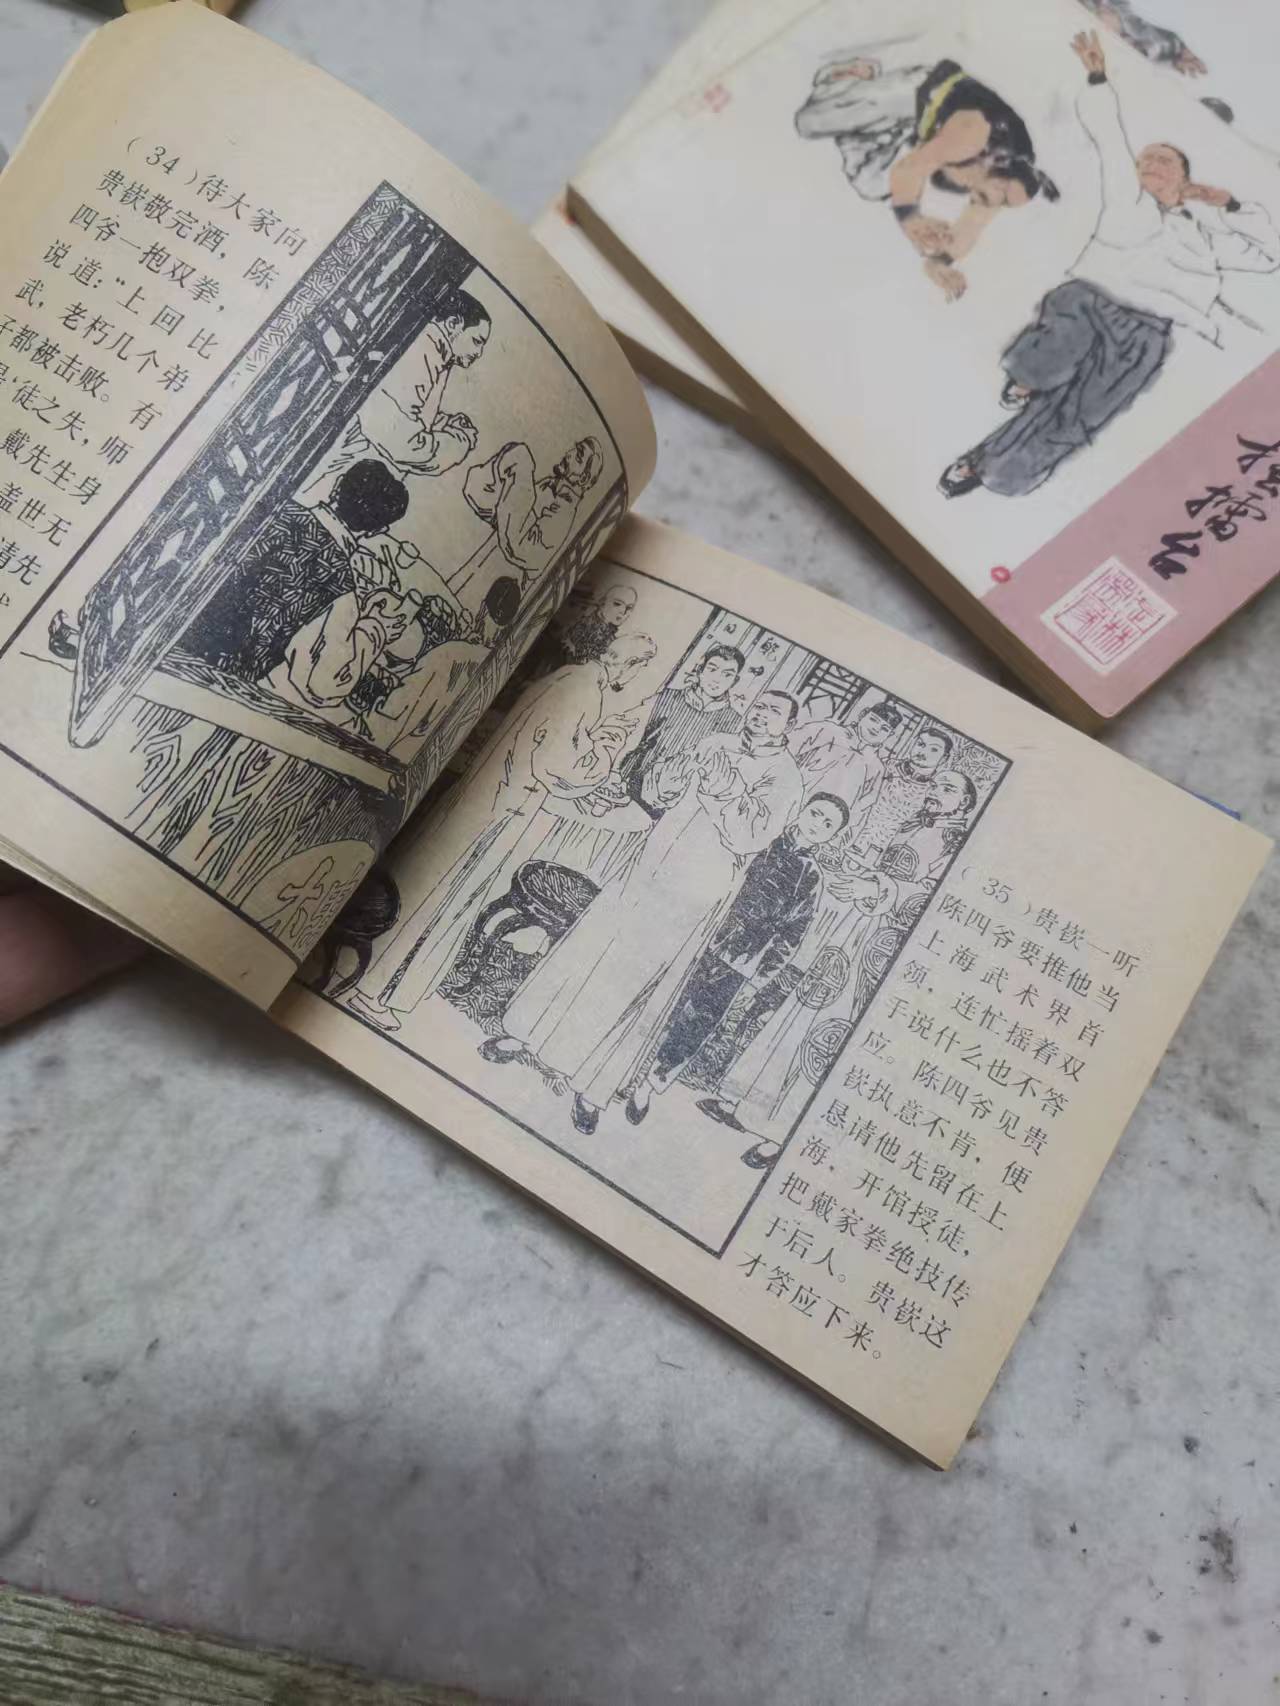 (34)待大家向
贵嵚敬完酒，陈
四爷一抱双拳，
说道：“上回比
武，老朽几个弟
子都被击败。有
徒之失，师
戴先生身
盖世无
请先
(35)贵嵚一听
陈四爷要推他当
上海武术界首
领，连忙摇着双
手说什么也不答
应。陈四爷见贵
嵚执意不肯，便
恳请他先留在上
海，开馆授徒，
把戴家拳绝技传
于后人。贵嵚这
才答应下来。
擂台